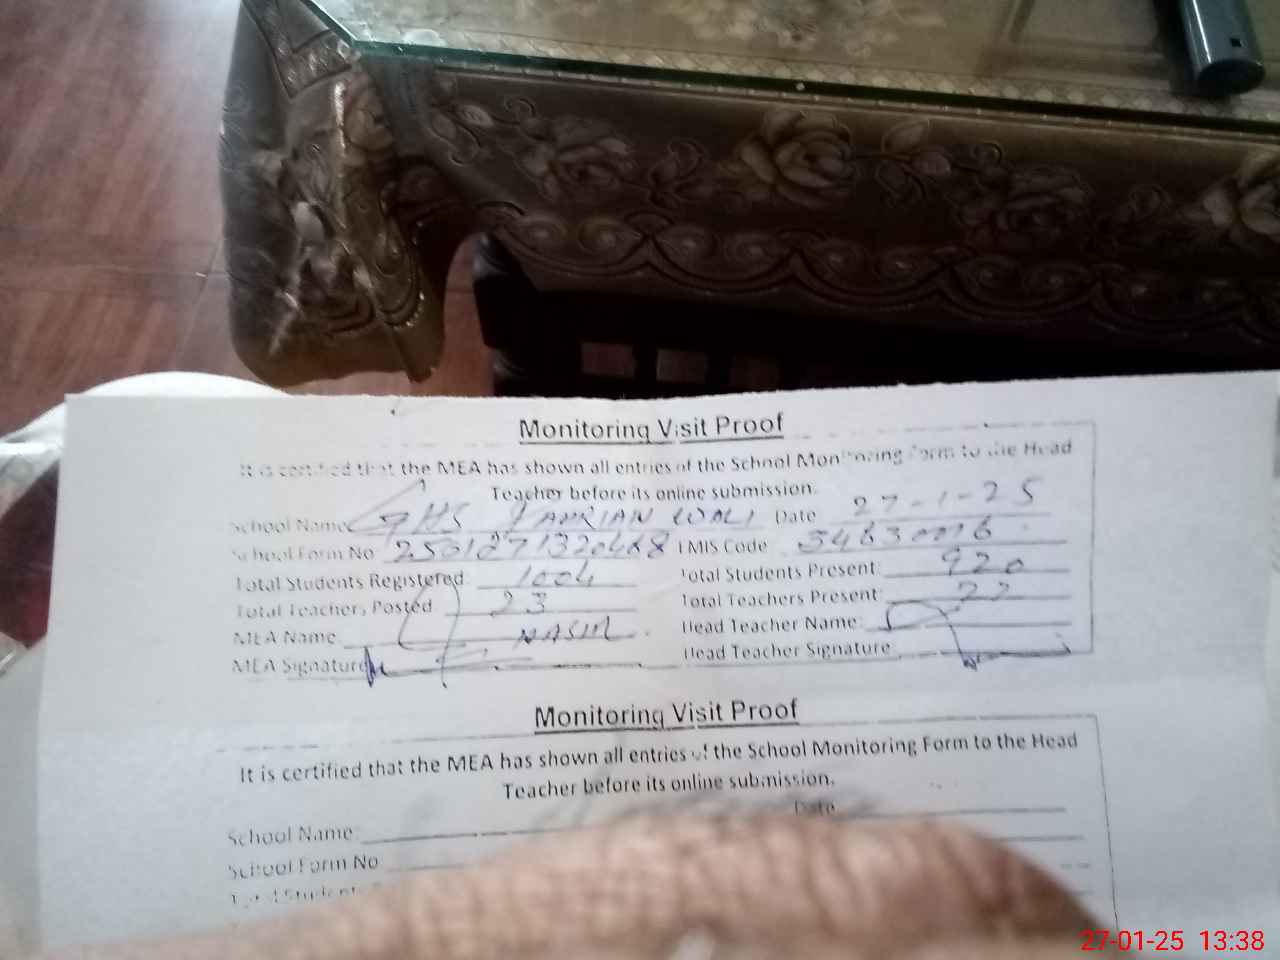 Monitoring Visit Proof
It is certified that the MEA has shown all entries of the School Monitoring Form to the Head
Teacher before its online submission.
School Name GHS WALI Date 27-1-25
School Form No EMIS Code
Total Students Registered: 1004 Total Students Present: 920
Total Teachers Posted: 23 Total Teachers Present: 22
MEA Name NASIR Head Teacher Name:
MEA Signature Head Teacher Signature
Monitoring Visit Proof
It is certified that the MEA has shown all entries of the School Monitoring Form to the Head
Teacher before its online submission.
Date
School Name
School Form No
Total Student
27-01-25 13:38